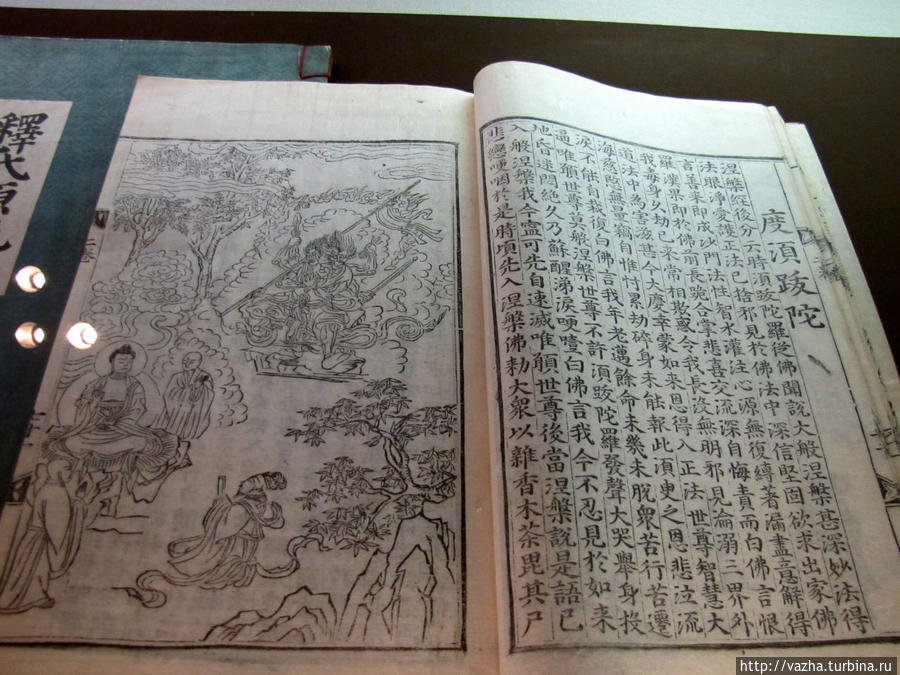 度須跋陀
涅槃經後分云時須跋陀羅從佛聞說大般涅槃甚深妙法得
法眼淨愛護正法已捨邪見於佛法中深信堅固欲求出家佛
言善來即成沙門法性智水灌注心源無復縛著漏盡意解得
羅漢果即於佛前長跪合掌悲喜交流深自悔責而白佛言恨
我毒身久劫已來常相欺惑令我長没無明邪見淪溺三界外
道法中為害滋甚今大慶幸蒙如來恩得入正法世尊智慧大
海慈愍無量竊自惟忖累劫碎身未能報此須臾之恩悲泣流
淚不能自裁復白佛言我年老邁餘命未幾未脫衆苦行苦遷
逼唯願世尊莫般涅槃世尊不許須跋陀羅發聲大哭舉身投
地昏迷悶絕久乃蘇醒涕淚哽噎白佛言我今不忍見於如來
入般涅槃我今寧可先自速滅唯願世尊後當涅槃說是語已
悲戀哽咽於是時頃先入涅槃佛勅大衆以雜香木荼毘其尸
上卷
釋氏源
http://vazha.turbina.ru